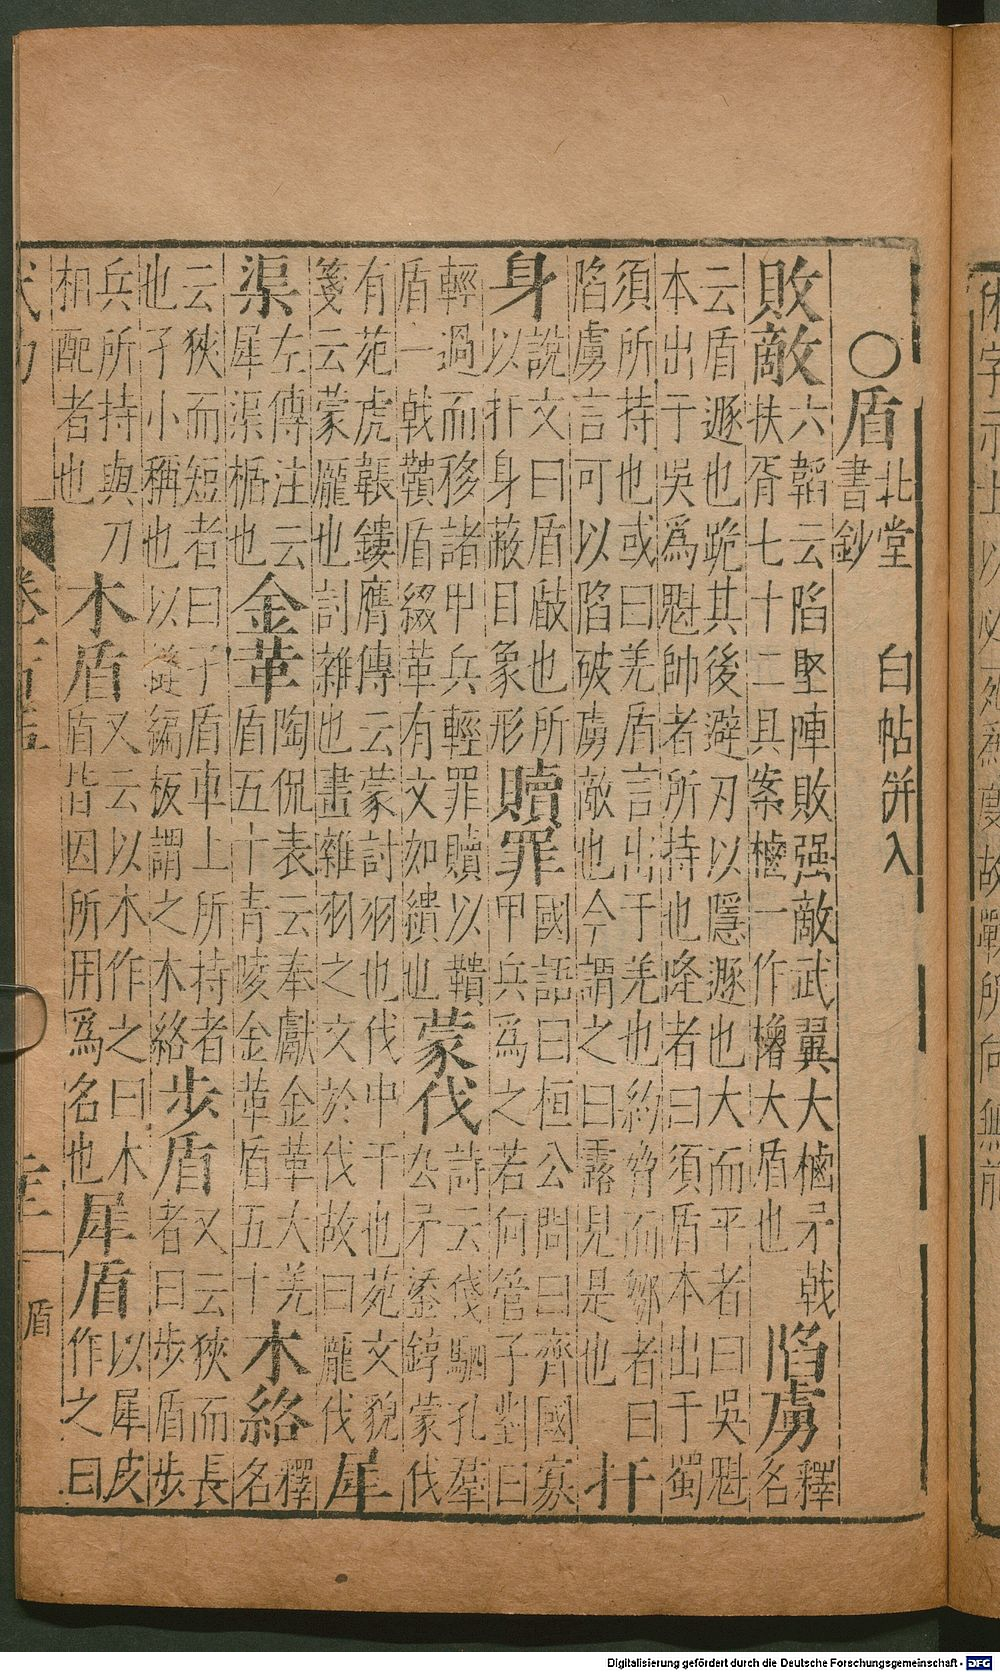 ○盾 北堂書鈔 白帖併入
敗敵 六韜云陷堅陣敗强敵武翼大櫓矛戟扶胥七十二具案櫓一作樐大盾也 陷虜 釋名
云盾遯也跪其後避刃以隱遯也大而平者曰吳魁本出于吳爲魁帥者所持也隆者曰須盾本出于蜀
須所持也或曰羌盾言出于羌也約脅而鄒者曰陷虜言可以陷破虜敵也今謂之曰露見是也 扞
身 說文曰盾瞂也所以扞身蔽目象形 贖罪 國語曰桓公問曰齊國寡甲兵爲之若何管子對曰
輕過而移諸甲兵輕罪贖以鞼盾一戟鞼盾綴革有文如繢也 蒙伐 詩云俴駟孔羣厹矛鋈錞蒙伐
有苑虎韔鏤膺傳云蒙討羽也伐中干也苑文貌箋云蒙厖也討雜也畫雜羽之文於伐故曰厖伐 犀
渠 左傳注云犀渠楯也 金革 陶侃表云奉獻金革大羌盾五十青陵金革盾五十 木絡 釋名
云狹而短者曰孑盾車上所持者也孑小稱也以縫編板謂之木絡 步盾 又云狹而長者曰步盾步
兵所持與刀相配者也 木盾 又云以木作之曰木盾皆因所用爲名也 犀盾 以犀皮作之曰
盾